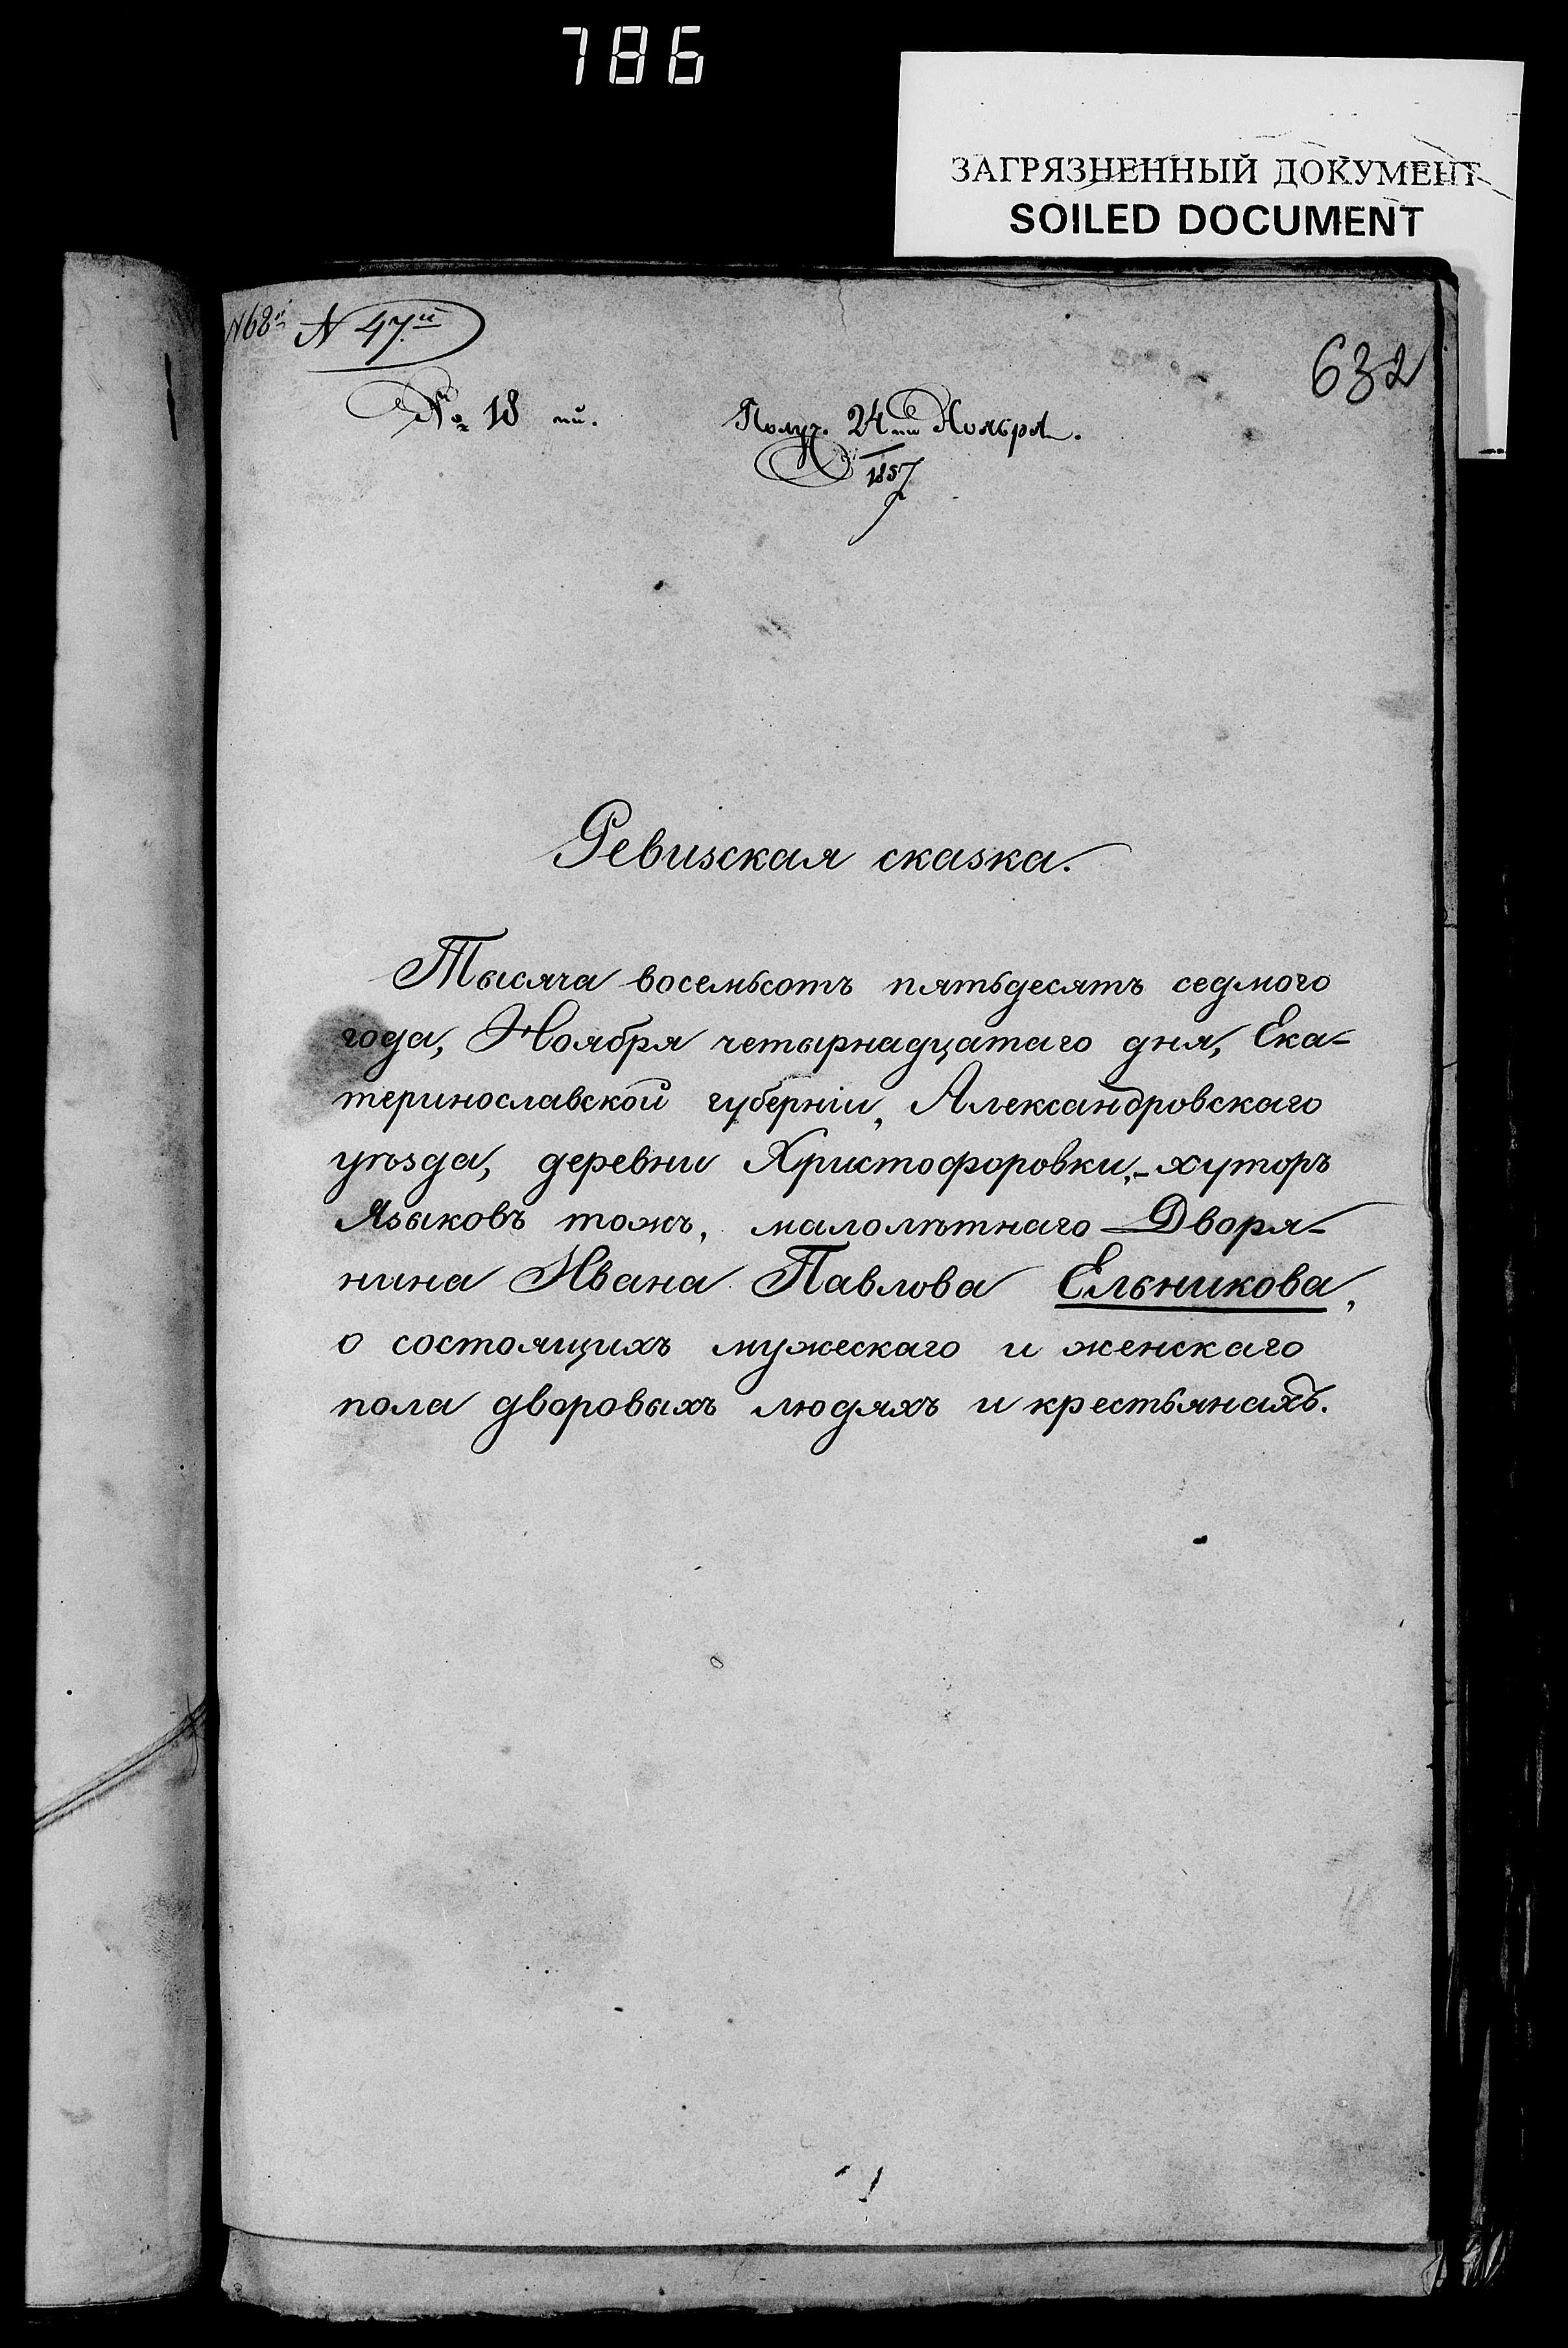 786
ЗАГРЯЗНЕННЫЙ ДОКУМЕНТ
SOILED DOCUMENT
N 68й N 47.й
632
№ 18 й. Получ. 24го Ноября.
1857
Ревизская сказка.
Тысяча восемьсотъ пятьдесятъ седмого
года, Ноября четырнадцатаго дня, Ека-
теринославской губерніи, Александровскаго
уѣзда, деревни Христофоровки, - хуторъ
Языковъ тожъ, малолѣтнаго Дворя-
нина Ивана Павлова Ельникова,
о состоящихъ мужескаго и женскаго
пола дворовыхъ людяхъ и крестьянахъ.